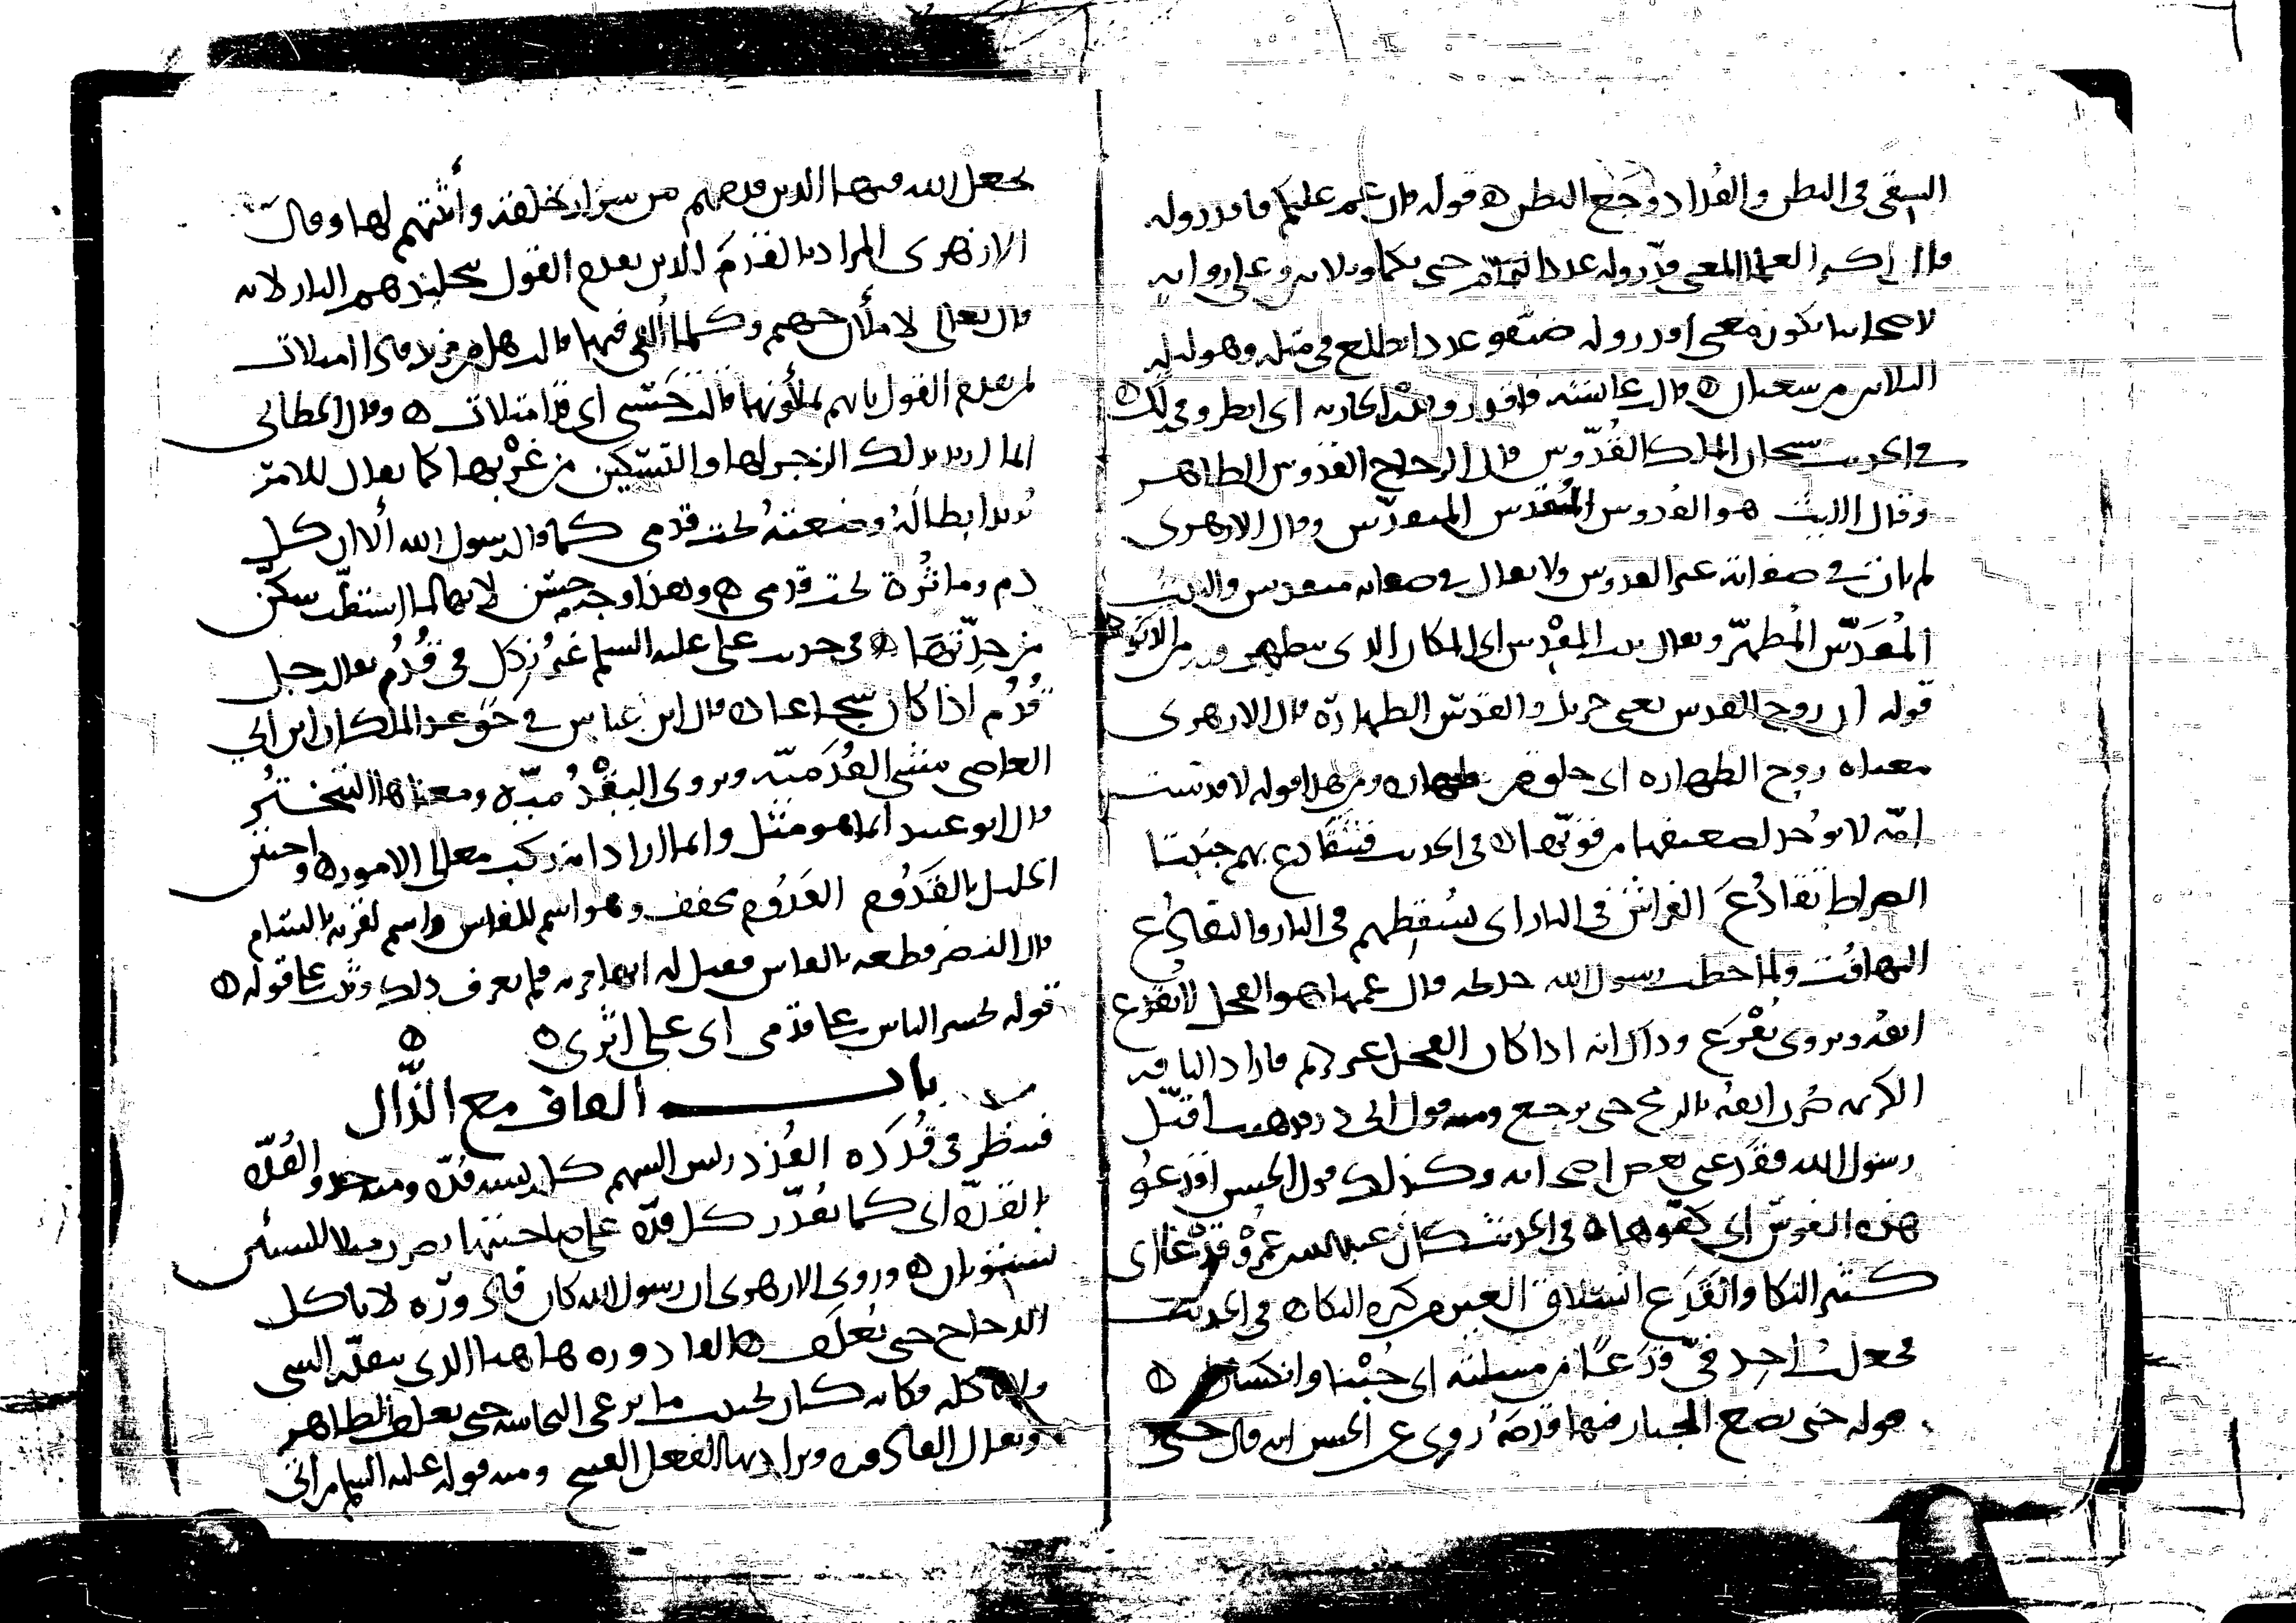 السقي في البطن والقداد وجع البطن ه قوله فان غم عليكم فاقدروا له
قال أكثر العلماء المعنى قدروا له عدد الشهر حتى يكملوه ثلاثين وعلى رواية
لأصحابنا يكون معنى اقدروا له ضيقوا عددا يطلع في مثله وهو ليلة
الثلاثين من شعبان ه قالت عائشة فاقدروا قدر الجارية اي انظروا في ذلك ه
في الحديث سبحان الملك القدوس قال الزجاج القدوس الطاهر
وقال الليث هو القدوس المقدس المتقدس وقال الازهري
لم يأت في صفاته غير القدوس ولا يقال في صفاته متقدس والبيت
المقدس المطهر ويقال بيت المقدس اي المكان الذي يتطهر فيه من الذنوب ه
قوله ان روح القدس يعني جبريل والقدس الطهارة قال الازهري
معناه روح الطهارة اي خلق من طهارة ومن هذا قوله لا قدست
امة لا يؤخذ لضعيفها من قويها ه في الحديث فتتقادع بهم جنبتا
الصراط تقادع الفراش في النار اي تسقطهم في النار والتقادع
التهافت ولما خطب رسول الله خديجة قال عمها هو الفحل لا يقدع
انفه ويروى يقرع وذاك انه اذا كان الفحل غير كريم فاراد الناقة
الكريمة ضرب انفه بالرمح حتى يرجع ومنه قول ابي ذر فذهبت اقبل
رسول الله فقدعني بعض اصحابه وكذلك قول الحسن اقدعوا
هذه النفوس اي كفوها ه في الحديث كان عبد الله بن عمر قدعا اي
كثير البكا والقدع انسلاق العين من كثرة البكا ه في الحديث
فجعلت اجد في قدعا من مسلته اي جبنا وانكسارا ه
قوله حتى يضع الجبار فيها قدمه روي عن الحسن انه قال حتى
يجعل الله فيها الذين قدمهم من شرار خلقه وأثبتهم لها وقال
الازهري المراد بالقدم الذين تقدم القول بتخليدهم النار لانه
قال تعالى لأملأن جهنم وكلما ألقي فيها قالت هل من مزيد فاذا امتلات
بمن تقدم القول بانهم يملأونها قالت حسبي اي قد امتلات ه وقال الخطابي
انما اريد بذلك الزجر لها والتسكين من غربها كما يقال للامر
تريد ابطاله وضعته تحت قدمي كما قال رسول الله ألا ان كل
دم ومأثرة تحت قدمي ه وهذا وجه حسن لانها لما استنطت سكن
من حدتها ه في حديث علي عليه السلم غير نكل في قدم يقال رجل
قدم اذا كان شجاعا ه قال ابن عباس في حق عبد الملك ان ابن ابي
العاصي مشى القدمية ويروى اليقدمية ومعناها التبختر
قال ابو عبيد انما هو مثل وانما اراد انه ركب معالي الامور ه واختتن
الخليل بالقدوم القدوم مخفف وهو اسم للفاس واسم لقرية بالشام
قال النضر قطعه بالفاس فقيل له انها قرية فلم يعرف ذلك وثبت على قوله ه
قوله يحشر الناس على قدمي اي على اثري ه
باب القاف مع الذال
فنظر في قذذه القذذ ريش السهم كل ريشة قذة ومنه حذو القذة
بالقذة اي كما تقدر كل قذة على صاحبتها يضرب مثلا للشيئين
يستويان ه وروى الازهري ان رسول الله كان قاذورة لا ياكل
الدجاج حتى يعلف ه القاذورة هاهنا الذي يتقذر الشي
ولا ياكله فكانه كان يجتنب ما يرعى النجاسة حتى يعلف الطاهر
ويقال القاذورة ويراد بها الفعل القبيح ومنه قوله عليه السلم من اتى